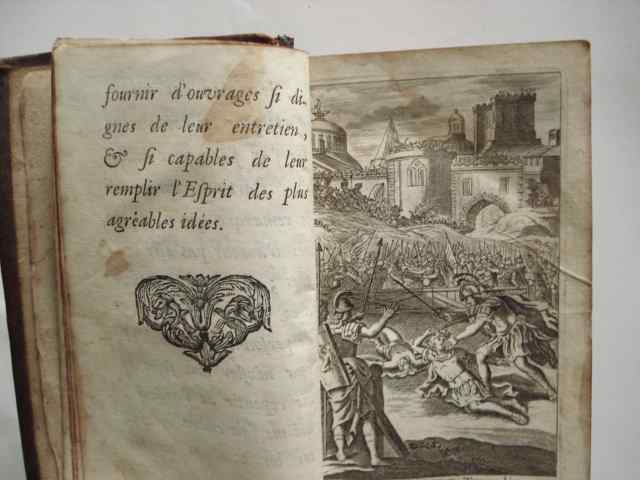 fournir d'ouvrages ſi di-
gnes de leur entretien,
& ſi capables de leur
remplir l'Eſprit des plus
agrèables idées.